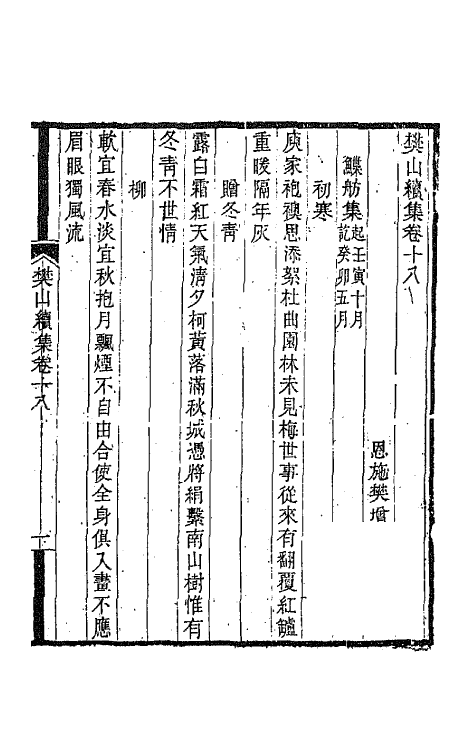 樊山續集卷十八
恩施樊增
鰈舫集起壬寅十月訖癸卯五月
初寒
庾家袍襖思添絮杜曲園林未見梅世事從來有翻覆紅鑪
重暖隔年灰
贈冬青
露白霜紅天氣淸夕柯黃落滿秋城憑將絹繫南山樹惟有
冬靑不世情
柳
軟宜春水淡宜秋抱月飄煙不自由合使全身俱入畫不應
眉眼獨風流
樊山續集卷十八
一